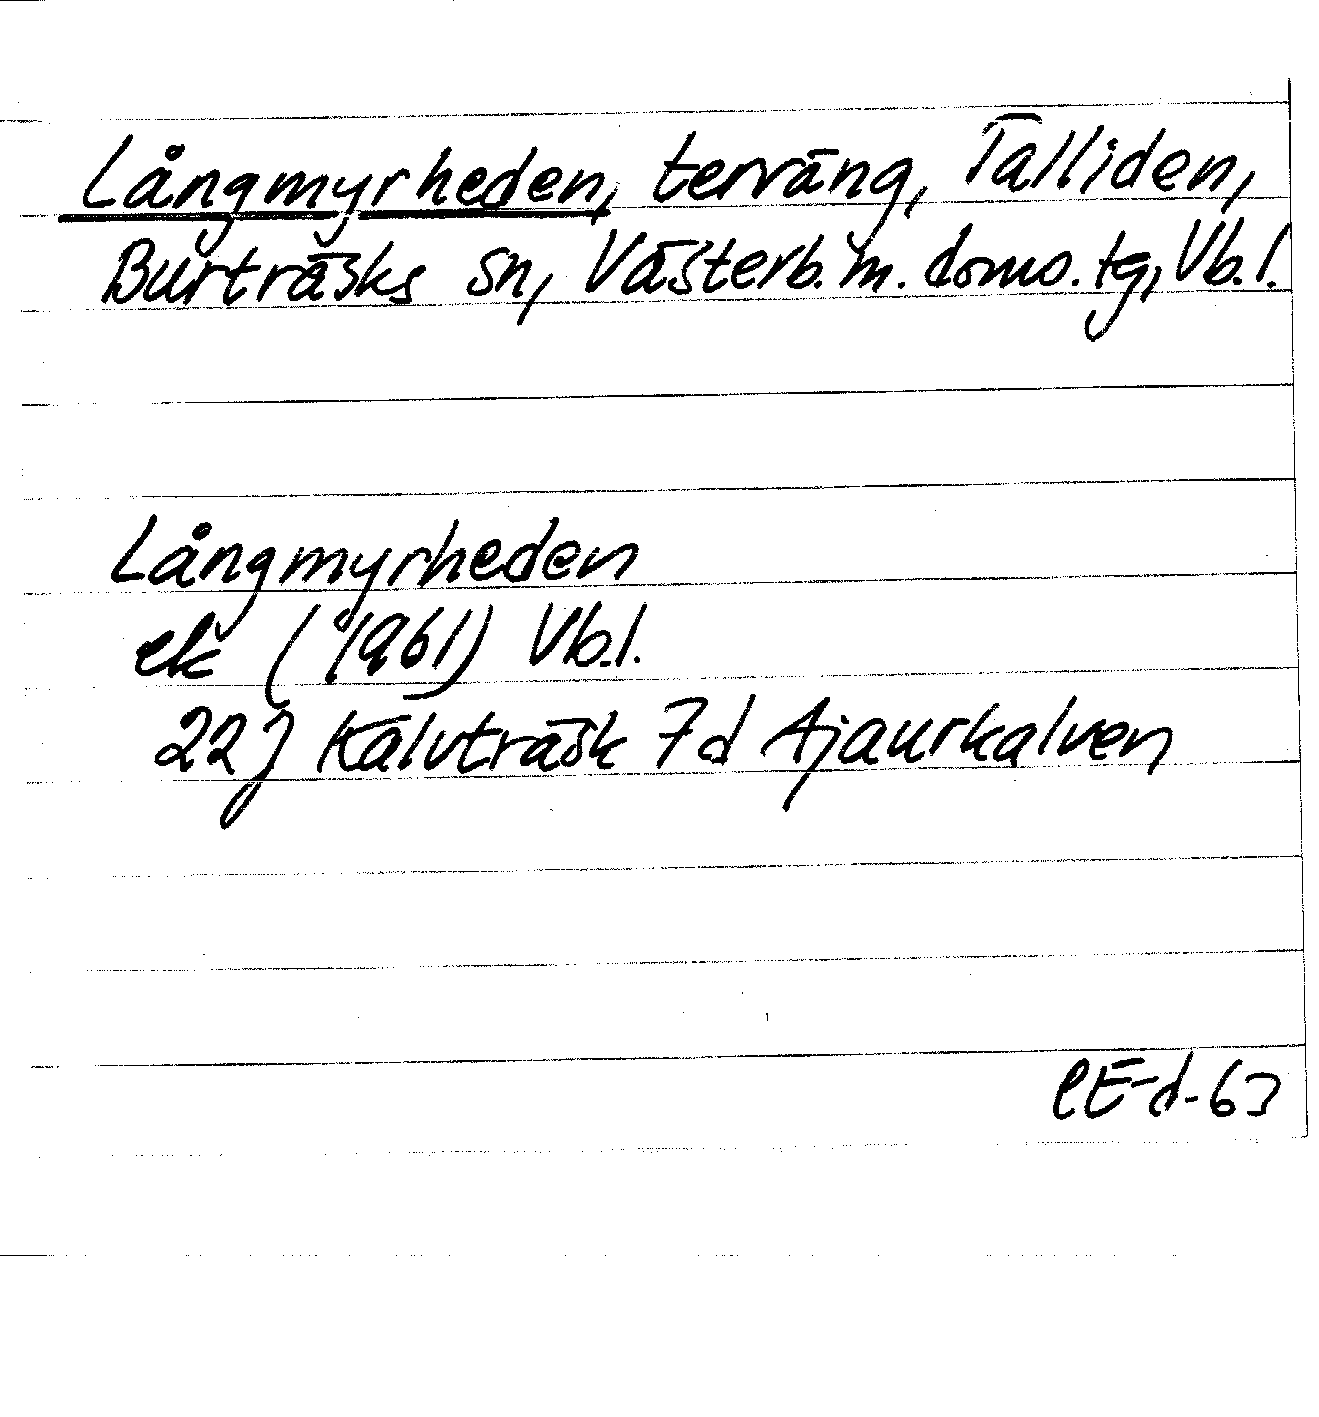 Långmyrheden, terräng, Talliden,
Burträsks sn, Västerb. m. doms. tg, Vb. l.
Långmyrheden
ek (1961) Vb. l.
22J Kalvträsk 7d Ajaurkalven
CE-d-63